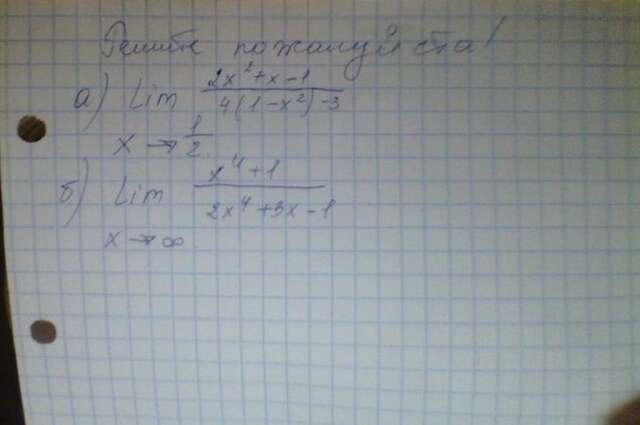 Решите пожалуйста!
а) Lim (2x²+x-1)/(4(1-x²)-3)
x→1/2
б) Lim (x⁴+1)/(2x⁴+3x-1)
x→∞